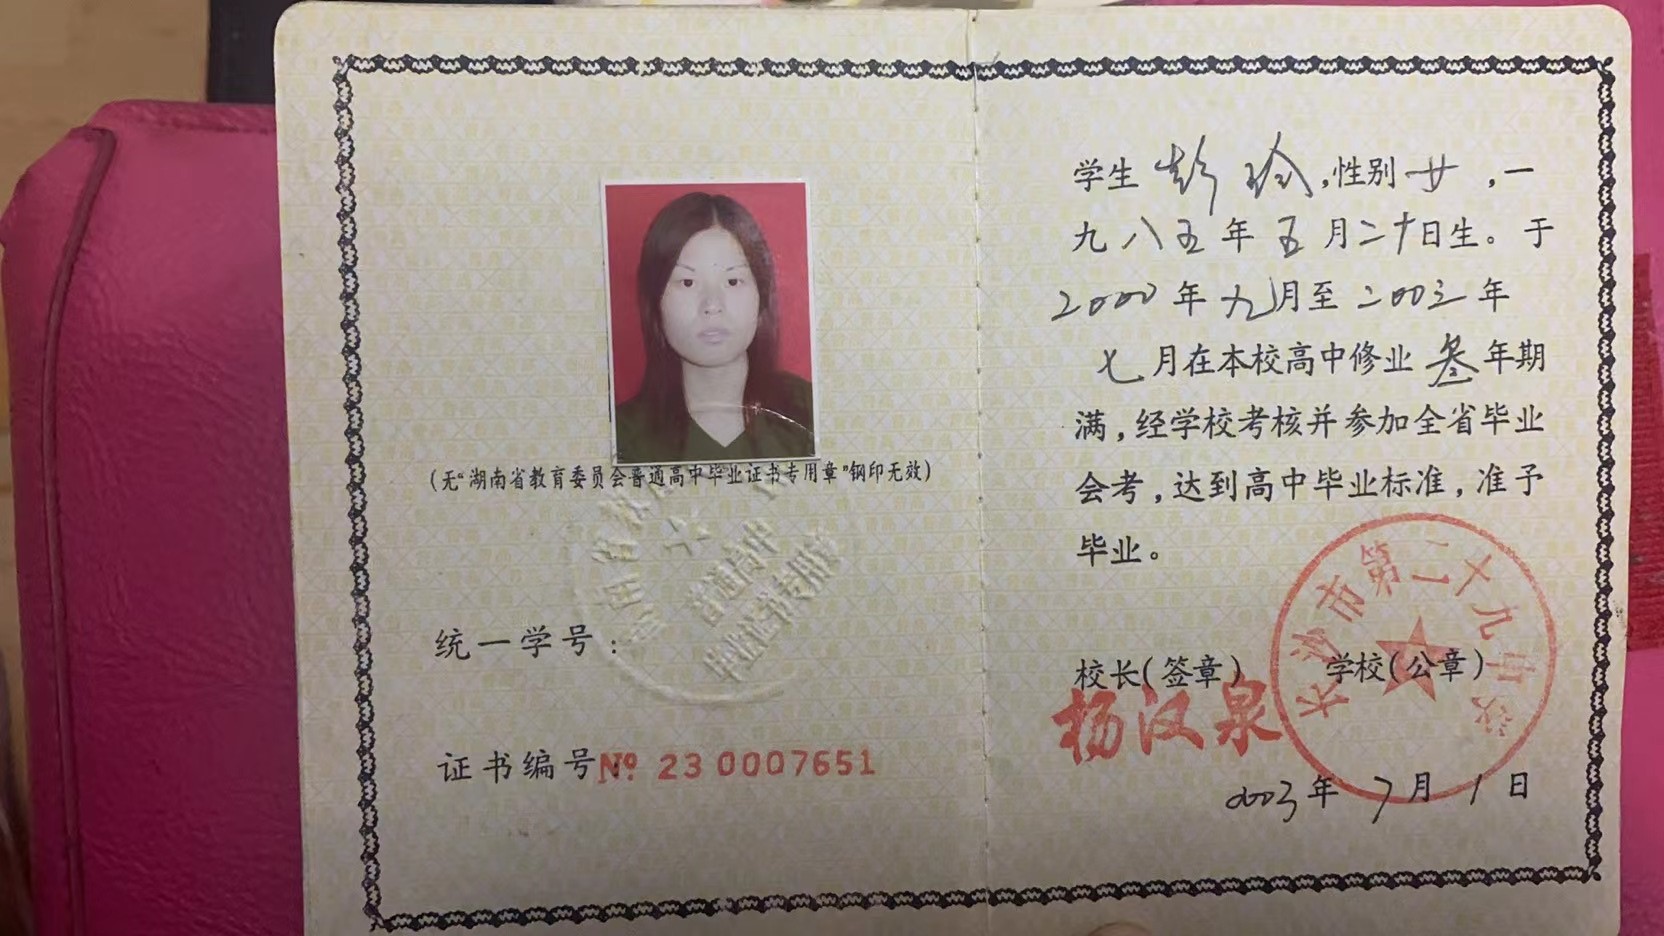 (无“湖南省教育委员会普通高中毕业证书专用章”钢印无效)
普通高中
毕业证书专用章
统一学号：
证书编号：№ 23 0007651
学生 彭 玲，性别 女，一
九八五年 五月二十日生。于
2000年 九月至 二00三年
七月在本校高中修业 叁年期
满，经学校考核并参加全省毕业
会考，达到高中毕业标准，准予
毕业。
校长(签章) 学校(公章)
杨汉泉
长沙市第二十九中学
2003年 7月 1日